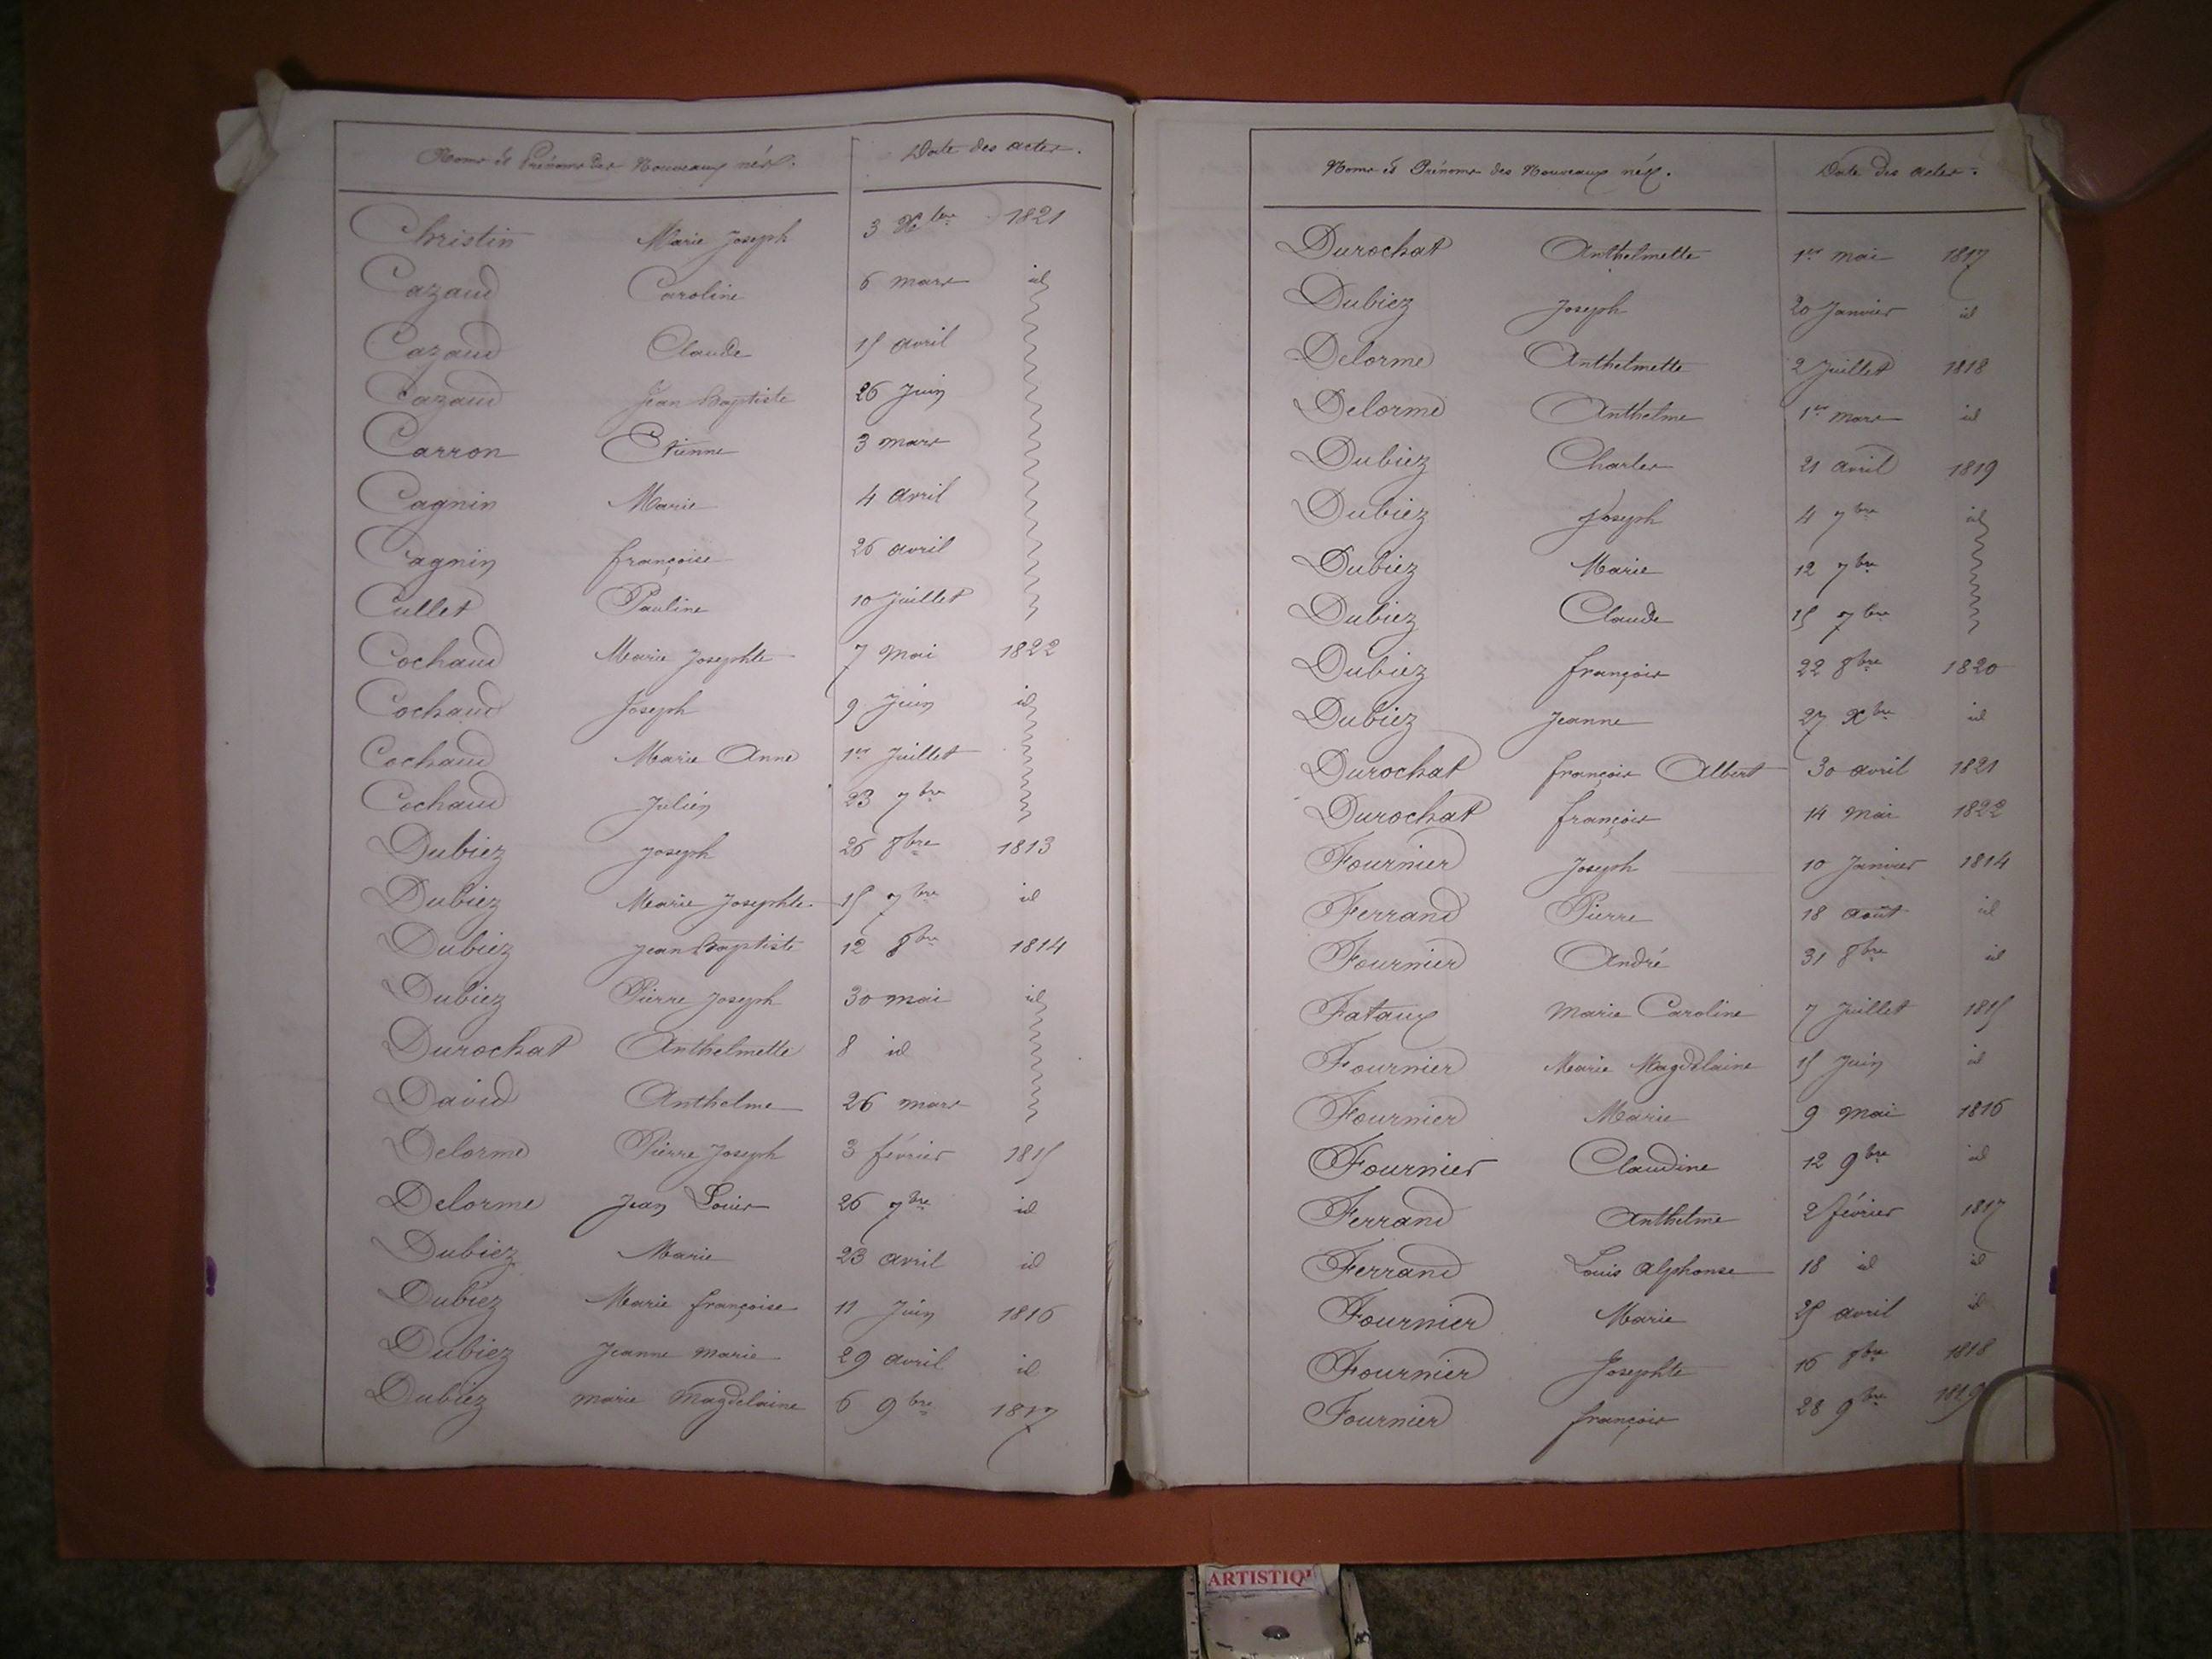 Noms et Prénoms des Nouveaux nés. Date des actes.
Christin Marie Joseph 3 Xbre 1821
Cazaud Caroline 6 mars id
Cazaud Claude 15 avril
Cazaud Jean Baptiste 26 Juin
Carron Etienne 3 mars
Cagnin Marie 4 avril
Cagnin françoise 26 avril
Cullet Pauline 10 Juillet
Cochaud Marie Josephte 7 Mai 1822
Cochaud Joseph 9 Juin id
Cochaud Marie Anne 1er Juillet
Cochaud Julien 23 7bre
Dubiez Joseph 26 8bre 1813
Dubiez Marie Josephte 15 7bre id
Dubiez Jean Baptiste 12 8bre 1814
Dubiez Pierre Joseph 30 mai id
Durochat Anthelmette 8 id
David Anthelme 26 mars
Delorme Pierre Joseph 3 février 1815
Delorme Jean Louis 26 7bre id
Dubiez Marie 23 avril id
Dubiez Marie françoise 11 Juin 1816
Dubiez Jeanne Marie 29 avril id
Dubiez Marie Magdelaine 6 9bre 1817
Noms et Prénoms des Nouveaux nés. Date des actes.
Durochat Anthelmette 1er mai 1817
Dubiez Joseph 20 Janvier id
Delorme Anthelmette 2 Juillet 1818
Delorme Anthelme 1er mars id
Dubiez Charles 21 avril 1819
Dubiez Joseph 4 7bre id
Dubiez Marie 12 7bre
Dubiez Claude 15 7bre
Dubiez françois 22 8bre 1820
Dubiez Jeanne 27 Xbre id
Durochat françois Albert 30 avril 1821
Durochat françois 14 Mai 1822
Fournier Joseph 10 Janvier 1814
Ferrand Pierre 18 août id
Fournier André 31 8bre id
Fataux Marie Caroline 7 Juillet 1815
Fournier Marie Magdelaine 15 Juin id
Fournier Marie 9 Mai 1816
Fournier Claudine 12 9bre id
Ferrand Anthelme 2 février 1817
Ferrand Louis Alphonse 18 id id
Fournier Marie 25 avril id
Fournier Josephte 16 8bre 1818
Fournier françois 28 9bre 1819
ARTISTIQ